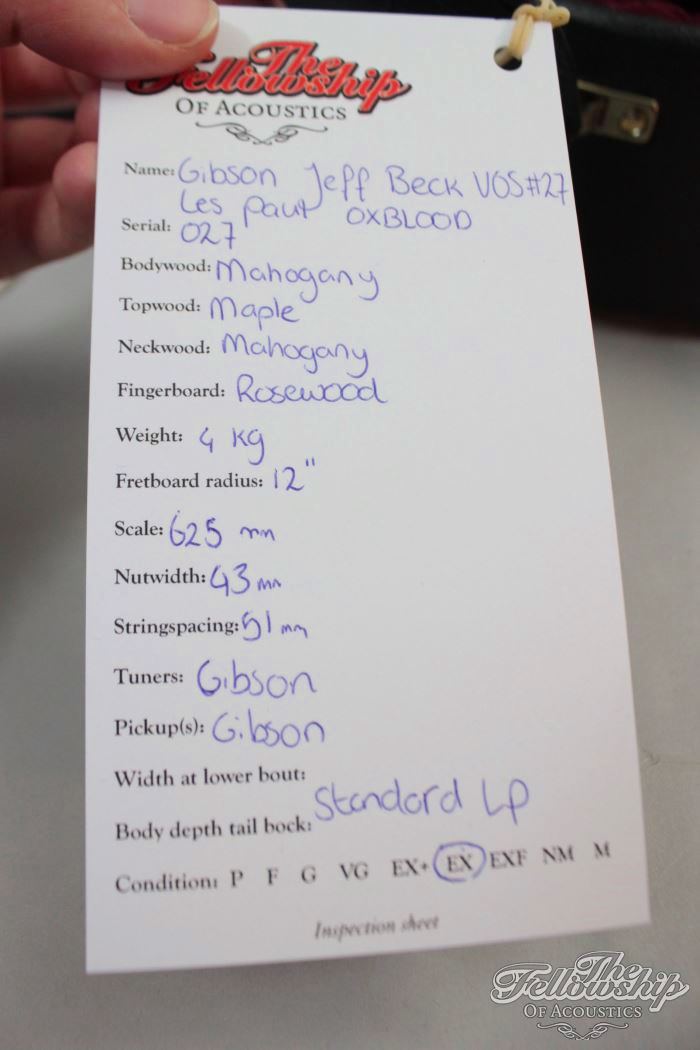 The
Fellowship
OF ACOUSTICS
Name: Gibson Jeff Beck VOS #27
Les Paul OXBLOOD
Serial: 027
Bodywood: Mahogany
Topwood: Maple
Neckwood: Mahogany
Fingerboard: Rosewood
Weight: 4 kg
Fretboard radius: 12"
Scale: 625 mm
Nutwidth: 43 mm
Stringspacing: 51 mm
Tuners: Gibson
Pickup(s): Gibson
Width at lower bout:
Standard LP
Body depth tail bock:
Condition: P F G VG EX+ EX EXF NM M
Inspection sheet
The
Fellowship
OF ACOUSTICS